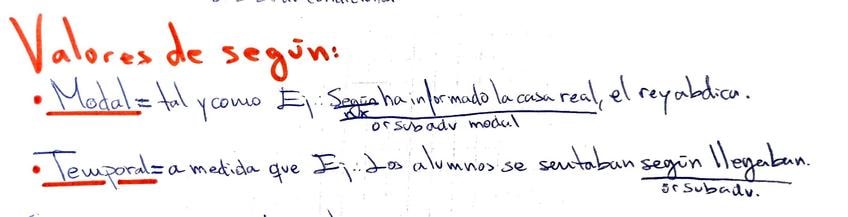 Valores de según:
• Modal = tal y como Ej.: Según ha informado la casa real, el rey abdica.
or sub adv modal
• Temporal = a medida que Ej.: Los alumnos se sentaban según llegaban.
or subadv.